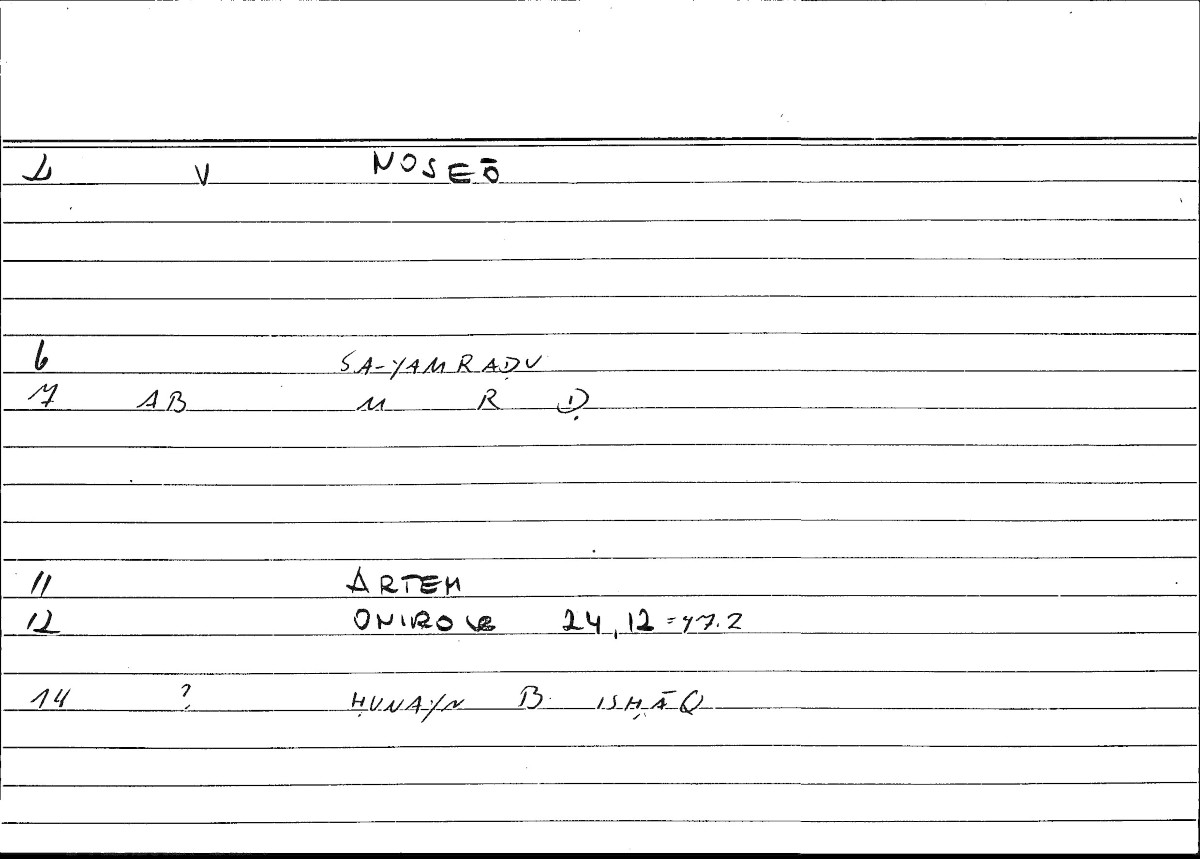 1 V NOSEŌ
6 SA-YAMRAḌU
7 AB M R Ḍ
11 ARTEM
12 ONIROCR 24,12 = 47.2
14 ? ḤUNAYN B. ISḤĀQ